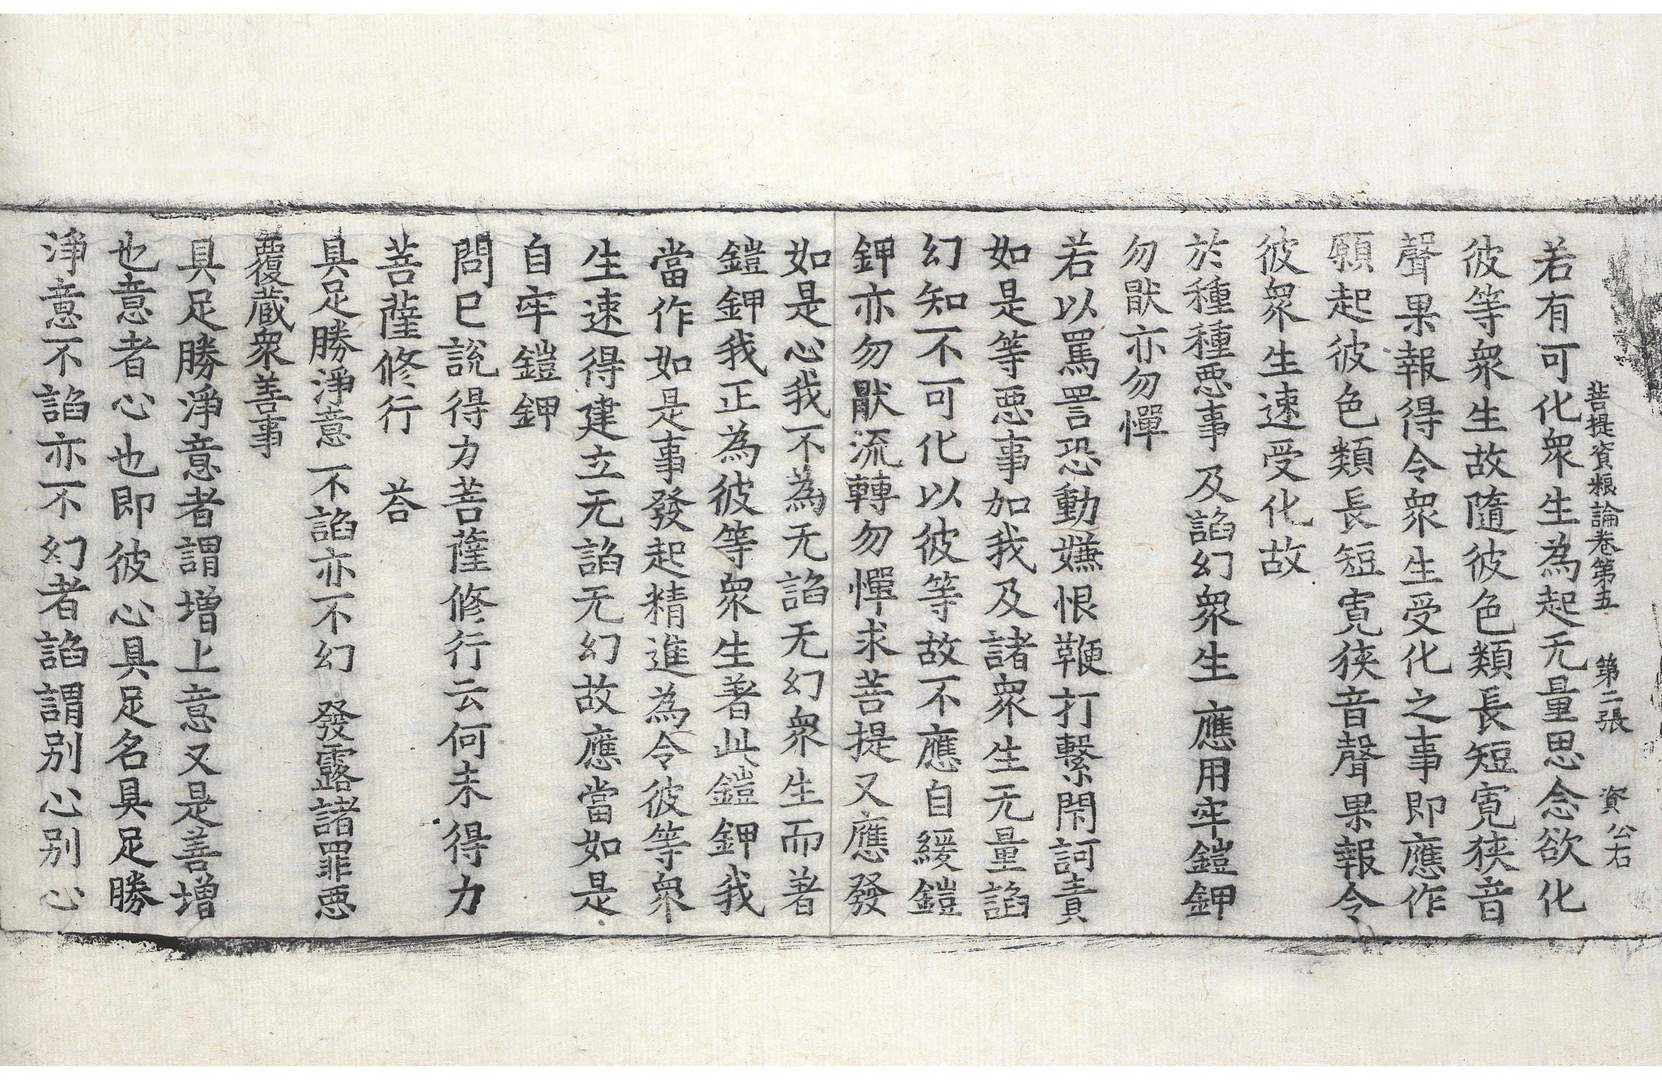 菩提資粮論卷第五 第二張 資 公右
若有可化衆生為起无量思念欲化
彼等衆生故隨彼色類長短寬狹音
聲果報得令衆生受化之事即應作
願起彼色類長短寬狹音聲果報令
彼衆生速受化故
於種種惡事 及諂幻衆生 應用牢鎧鉀
勿猒亦勿憚
若以罵詈恐動嫌恨鞭打繫閇訶責
如是等惡事加我及諸衆生无量諂
幻知不可化以彼等故不應自緩鎧
鉀亦勿猒流轉勿憚求菩提又應發
如是心我不為无諂无幻衆生而著
鎧鉀我正為彼等衆生著此鎧鉀我
當作如是事發起精進為令彼等衆
生速得建立无諂无幻故應當如是
自牢鎧鉀
問已說得力菩薩修行云何未得力
菩薩修行 荅
具足勝淨意 不諂亦不幻 發露諸罪惡
覆蔵衆善事
具足勝淨意者謂增上意又是善增
也意者心也即彼心具足名具足勝
淨意不諂亦不幻者諂謂別心別心